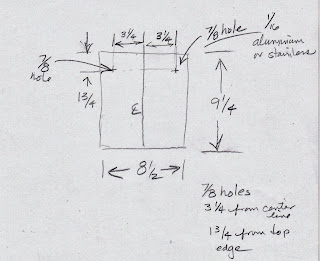 3 1/4 3 1/4
7/8 hole
1/16 aluminium or stainless
7/8 hole
1 3/4
9 1/4
8 1/2
7/8 holes
3 1/4 from center
line
1 3/4 from top
edge